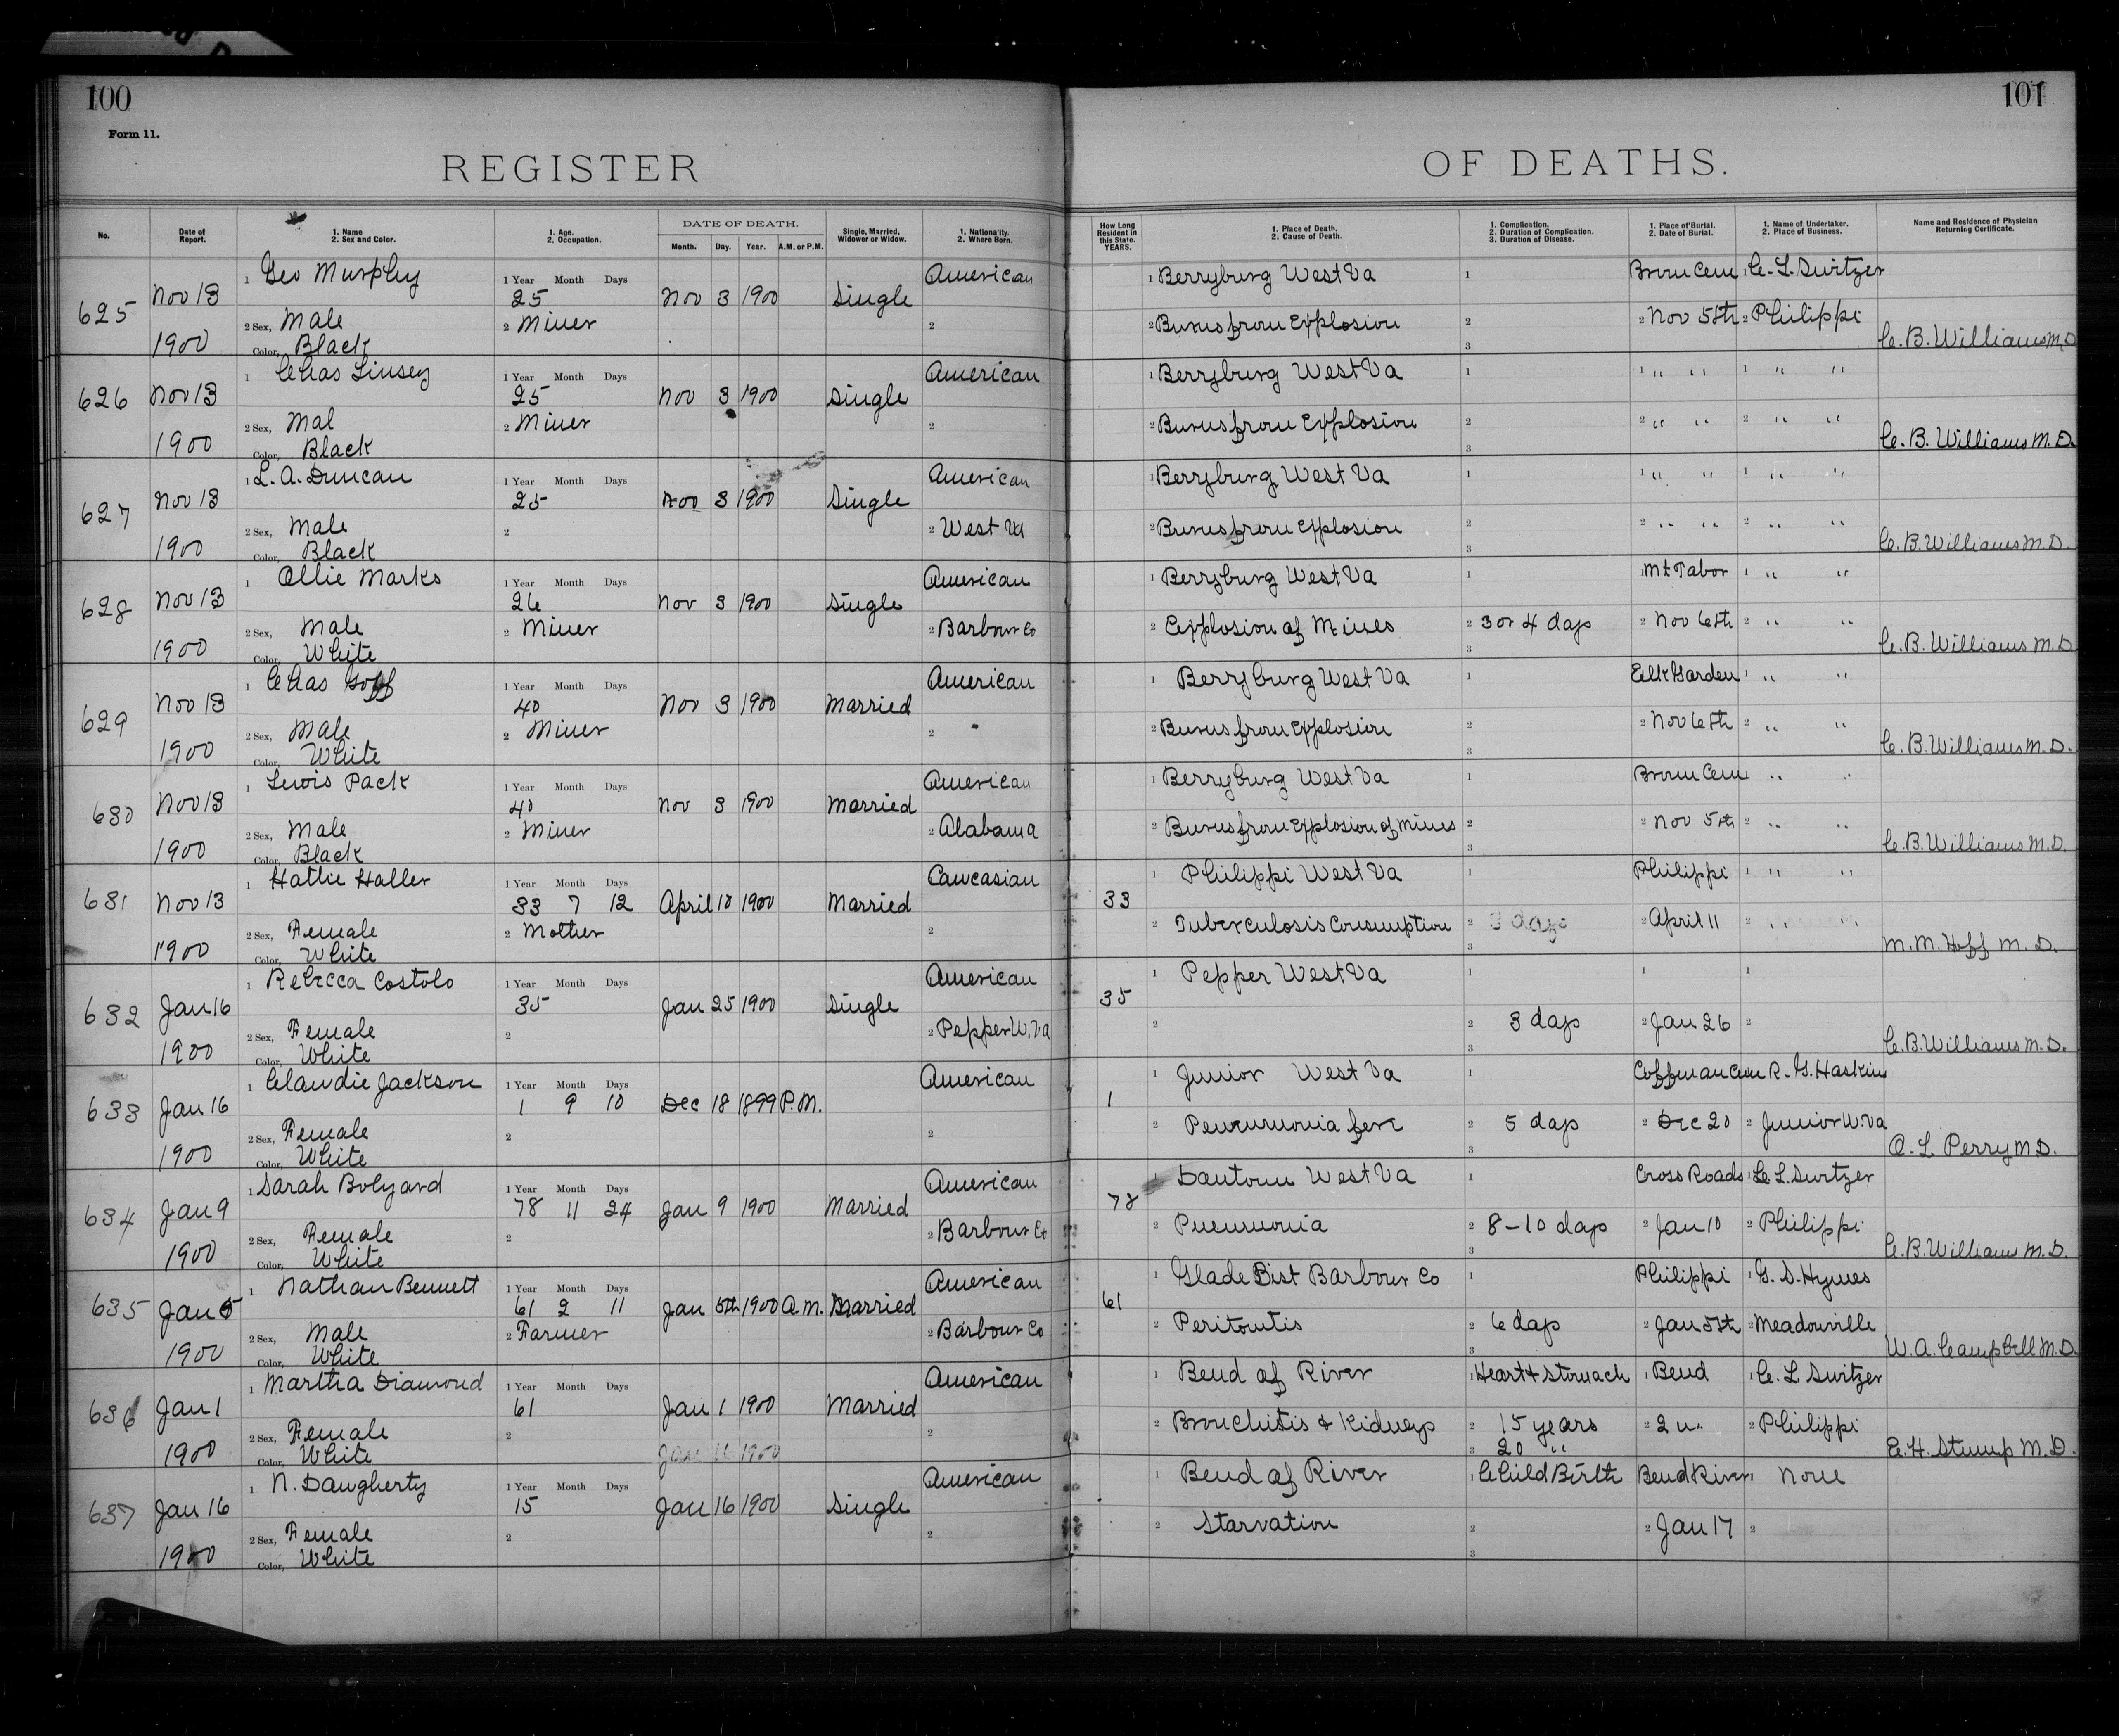 100
101
Form 11.
REGISTER
OF DEATHS.
No.
Date of Report.
1. Name
2. Sex and Color.
1. Age.
2. Occupation.
DATE OF DEATH.
Month. Day. Year. A.M. or P.M.
Single, Married, Widower or Widow.
1. Nationality.
2. Where Born.
How Long Resident in this State. YEARS.
1. Place of Death.
2. Cause of Death.
1. Complication.
2. Duration of Complication.
3. Duration of Disease.
1. Place of Burial.
2. Date of Burial.
1. Name of Undertaker.
2. Place of Business.
Name and Residence of Physician Returning Certificate.
1 Geo Murphy 1 Year Month Days American 1 Berryburg West Va 1 Brown Cem 1 C. L. Switzer
625 Nov 13 25 Nov 3 1900 Single
2 Sex, Male 2 Miner 2 2 Burns from Explosion 2 2 Nov 5th 2 Philippi
1900 Color, Black 3 C. B. Williams M.D
1 Chas Linsey 1 Year Month Days American 1 Berryburg West Va 1 1 " " 1 " "
626 Nov 13 25 Nov 3 1900 Single
2 Sex, Mal 2 Miner 2 2 Burns from Explosion 2 2 " " 2 " "
1900 Color, Black 3 C. B. Williams M.D.
1 L. A. Duncan 1 Year Month Days American 1 Berryburg West Va 1 1 " " 1 " "
627 Nov 13 25 Nov 3 1900 Single
2 Sex, Male 2 2 West Va 2 Burns from Explosion 2 2 " " 2 " "
1900 Color, Black 3 C. B. Williams M.D.
1 Ollie Marks 1 Year Month Days American 1 Berryburg West Va 1 1 Mt Tabor 1 " "
628 Nov 13 26 Nov 3 1900 Single
2 Sex, Male 2 Miner 2 Barbour Co 2 Explosion of Mines 2 3 or 4 days 2 Nov 6th 2 " "
1900 Color, White 3 C. B. Williams M.D
1 Chas Goff 1 Year Month Days American 1 Berryburg West Va 1 Elk Garden 1 " "
629 Nov 13 40 Nov 3 1900 Married
2 Sex, Male 2 Miner 2 " 2 Burns from Explosion 2 2 Nov 6th 2 " "
1900 Color, White 3 C. B. Williams M.D.
1 Lewis Pack 1 Year Month Days American 1 Berryburg West Va 1 Brown Cem " "
630 Nov 13 40 Nov 3 1900 Married
2 Sex, Male 2 Miner 2 Alabama 2 Burns from Explosion of Mines 2 2 Nov 5th 2 " "
1900 Color, Black 3 C. B. Williams M.D.
1 Hattie Haller 1 Year Month Days Caucasian 1 Philippi West Va 1 Philippi 1 " "
631 Nov 13 33 7 12 April 10 1900 Married 33
2 Sex, Female 2 Mother 2 2 Tuberculosis Consumption 2 3 days 2 April 11 2 " "
1900 Color, White 3 M. M. Hoff M. D.
1 Rebecca Costolo 1 Year Month Days American 1 Pepper West Va 1 1 1
632 Jan 16 35 Jan 25 1900 Single 35
2 Sex, Female 2 2 Pepper W. Va 2 2 3 days 2 Jan 26 2
1900 Color, White 3 C. B. Williams M. D.
1 Claudie Jackson 1 Year Month Days American 1 Junior West Va 1 Coffman Cem R. G. Haskins
633 Jan 16 1 9 10 Dec 18 1899 P.M. 1
2 Sex, Female 2 2 2 Pneumonia 2 5 days 2 Dec 20 2 Junior W. Va
1900 Color, White 3 A. L. Perry M D.
1 Sarah Bolyard 1 Year Month Days American 1 Dantown West Va 1 Cross Roads 1 C. L. Switzer
634 Jan 9 78 11 24 Jan 9 1900 Married 78
2 Sex, Female 2 2 Barbour Co 2 Pneumonia 2 8-10 days 2 Jan 10 2 Philippi
1900 Color, White 3 C. B. Williams M. D.
1 Nathan Bennett 1 Year Month Days American 1 Glade Dist Barbour Co 1 Philippi 1 G. S. Hymes
635 Jan 5 61 2 11 Jan 5th 1900 A.M. Married 61
2 Sex, Male 2 Farmer 2 Barbour Co 2 Peritontis 2 6 days 2 Jan 5th 2 Meadowville
1900 Color, White 3 W. A. Campbell M. D.
1 Martha Diamond 1 Year Month Days American 1 Bend of River 1 Heart & Stomach 1 Bend 1 C. L Switzer
636 Jan 1 61 Jan 1 1900 Married
2 Sex, Female 2 2 2 Bronchitis & Kidneys 2 15 years 2 2 2 Philippi
1900 Color, White Jan 16 1900 3 20 " E. H. Stump M. D.
1 N. Daugherty 1 Year Month Days American 1 Bend of River 1 Child Birth Bend River 1 None
637 Jan 16 15 Jan 16 1900 Single
2 Sex, Female 2 2 2 Starvation 2 2 Jan 17 2
1900 Color, White 3